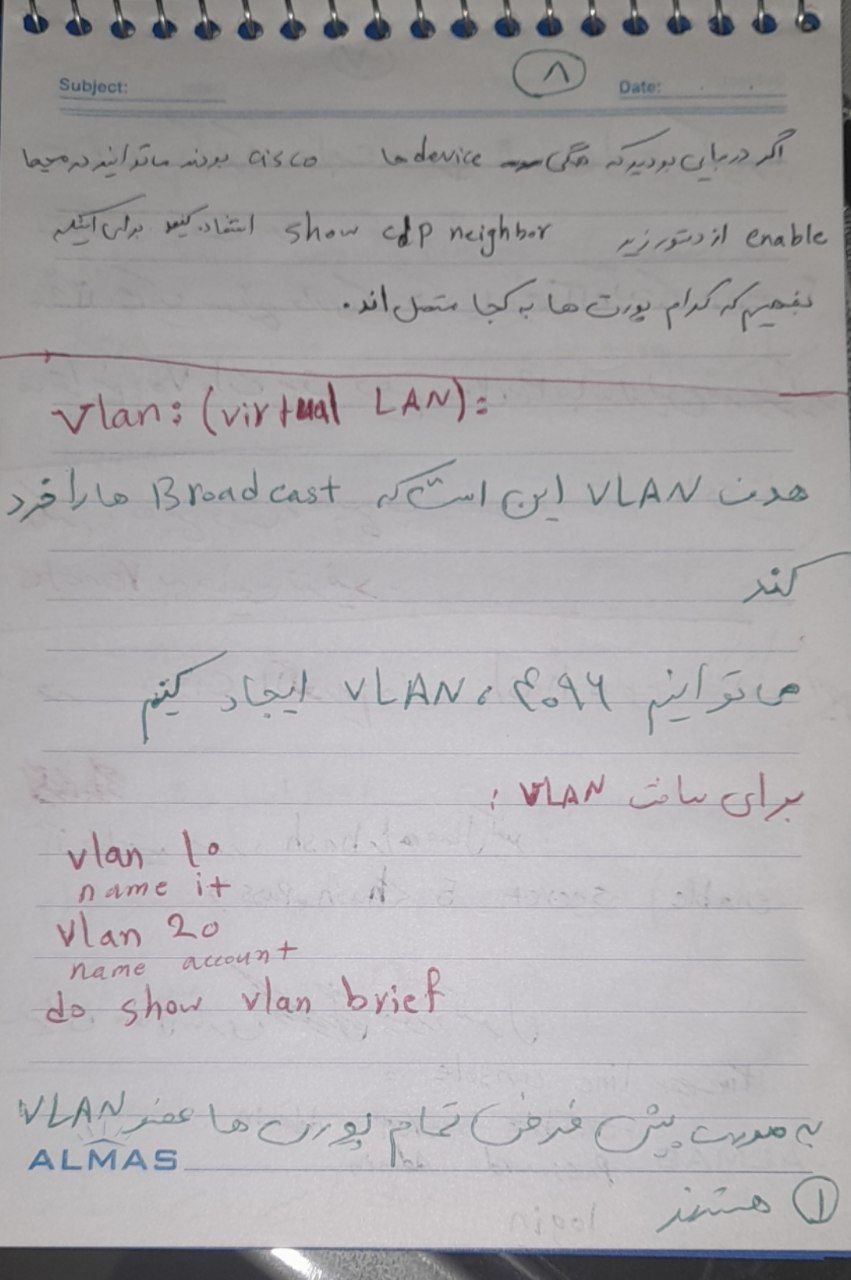 Subject:
۸
Date:
اگر درجایی بودید که همگی device ها cisco بودند ما توانید در محیط
enable از دستور زیر show cdp neighbor استفاده کنید برای اینکه
بفهمیم که کدام پورت ها به کجا متصل اند.
Vlan: (virtual LAN):
هدف VLAN این است که Broadcast ها را خرد
کند
ما توانیم ۴۰۹۶ VLAN ایجاد کنیم
برای ساخت VLAN :
vlan 10
name it
vlan 20
name account
do show vlan brief
به صورت پیش فرض تمام پورت ها عضو VLAN
ALMAS
1 هستند